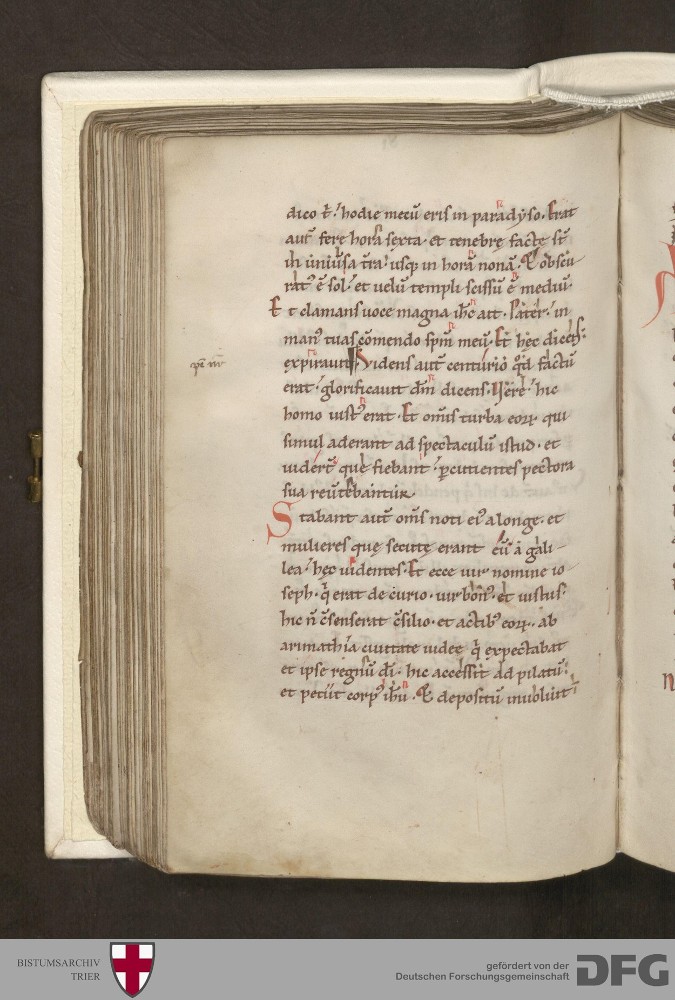 dico t̄. hodie mecū eris in paradyso. Erat
aut̄ fere hora sexta. et tenebrę factę st̄
in uniūsa t̄ra. usq; in horā nonā. Et obscu
rat᷒ ē sol. et uelū templi scissū ē mediū.
Et clamans uoce magna ih̄c ait. Pater. in
man᷒ tuas cōmendo sp̄m meū. Et hęc dicens.
expirauit. Videns aut̄ centurio qd̄ factū
erat. glorificauit dm̄ dicens. Uere hic
homo iust᷒ erat. Et om̄is turba eoꝝ qui
simul aderant ad spectaculū istud. et
uidert̄ quę fiebant. ꝑcutientes pectora
sua reūtebantur.
Stabant aut̄ om̄s noti ei᷒ a longe. et
mulieres quę secutę erant eū a gali
lea. hęc uidentes. Et ecce uir nomine io
seph. q̄ erat decurio. uir bon᷒. et iustus.
hic n̄ c̄senserat c̄silio. et actib᷒ eoꝝ. ab
arimathia ciuitate iudeę. q̄ expectabat
et ipse regnū dī. hic accessit ad pilatū.
et petiit corp᷒ ih̄u. Et depositū inuoluit
BISTUMSARCHIV
TRIER
gefördert von der
Deutschen Forschungsgemeinschaft
DFG